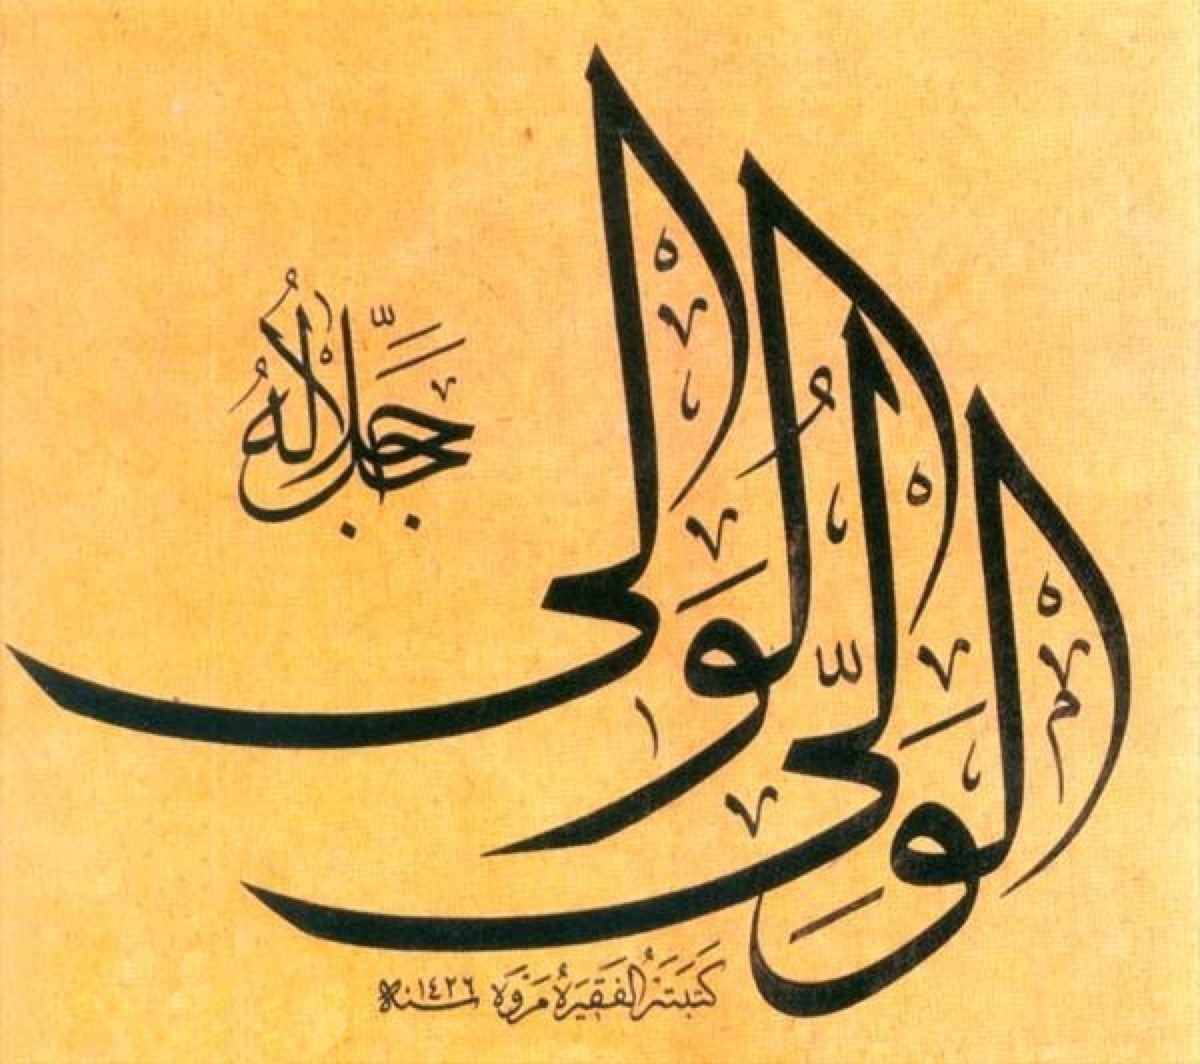 الْوَلِىّ
الْوَالِى
جَلَّ جَلَالُهُ
كَتَبَتْهُ الفَقِيرَةُ مَرْوَة سنة ١٤٢٦